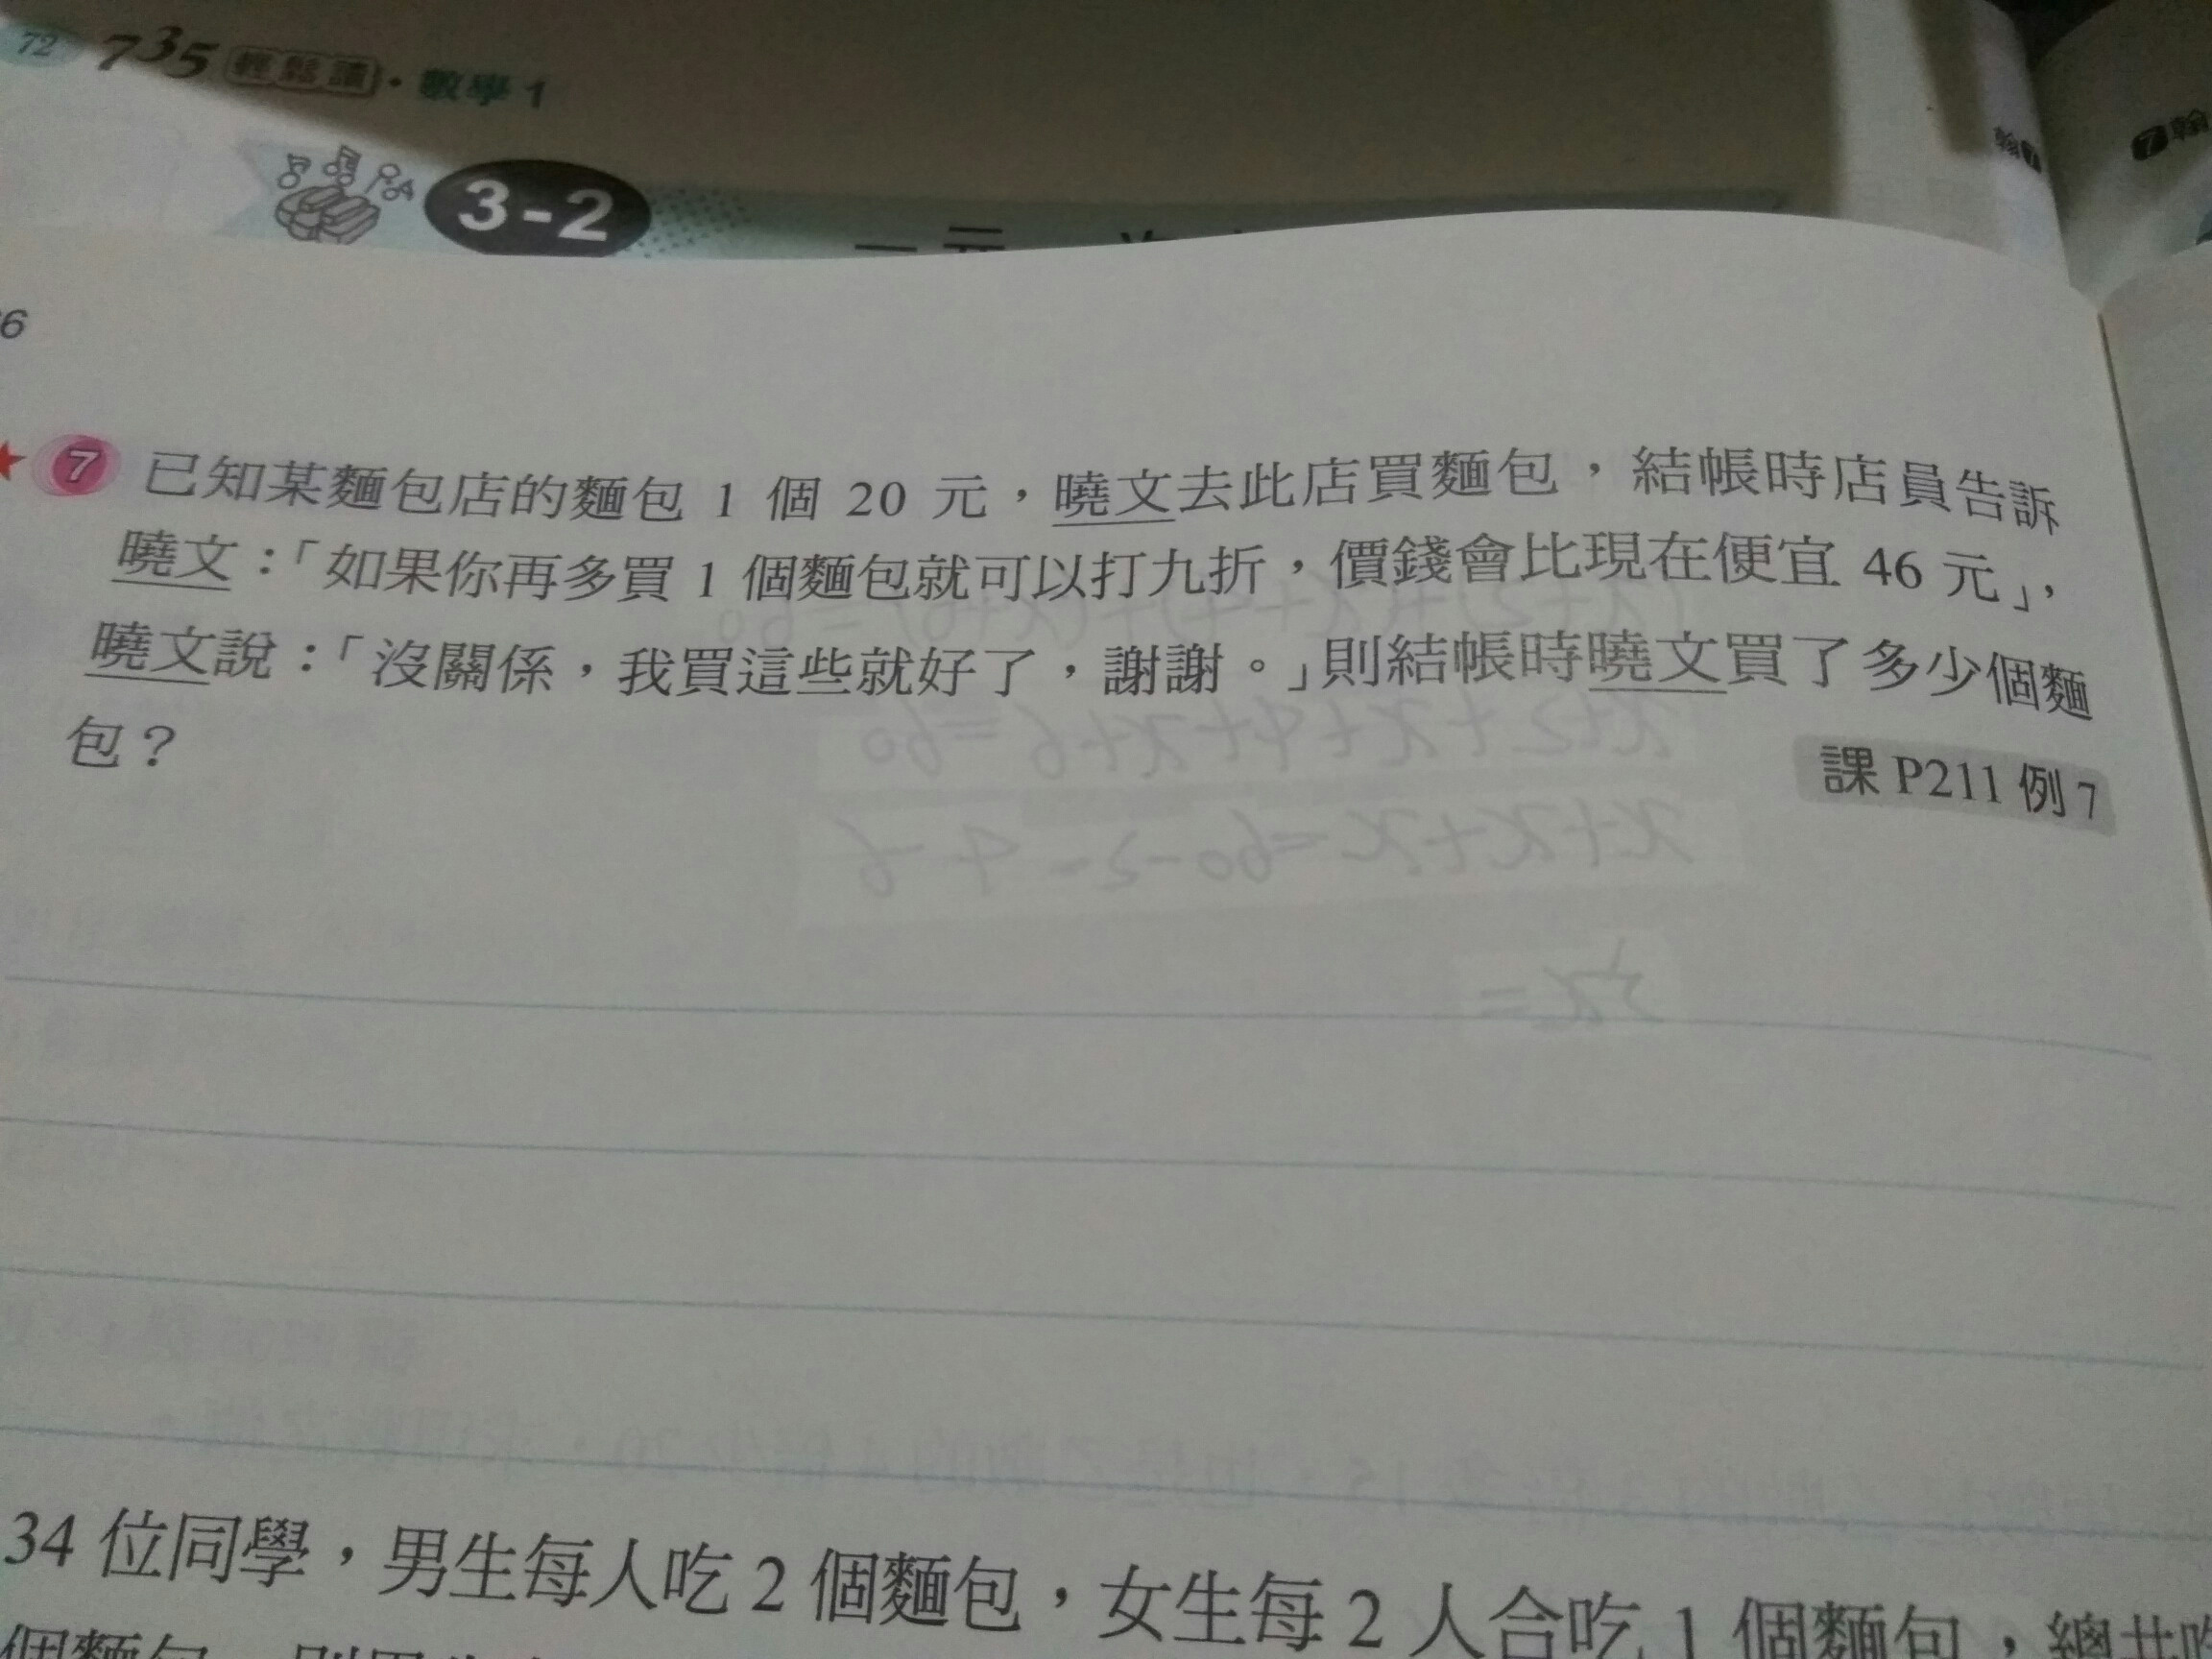 72 735 輕鬆讀・數學1
3-2
6
7 已知某麵包店的麵包 1 個 20 元，曉文去此店買麵包，結帳時店員告訴
曉文：「如果你再多買 1 個麵包就可以打九折，價錢會比現在便宜 46 元」，
曉文說：「沒關係，我買這些就好了，謝謝。」則結帳時曉文買了多少個麵
包？
課 P211 例 7
34 位同學，男生每人吃 2 個麵包，女生每 2 人合吃 1 個麵包，總共吃